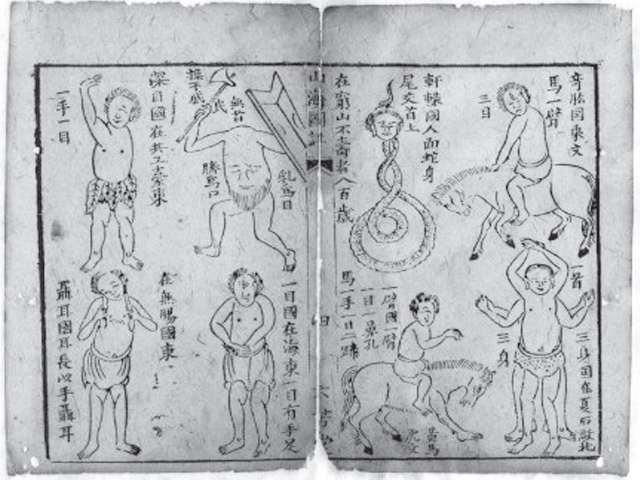 奇肱國乘文
馬一臂
三目
軒轅國人面蛇身
尾交首上
在窮山不壽者八百歲
一首
三身
三身國在夏后啟北
一臂國一臂
一目一鼻孔
馬一手一目
黃馬
虎文
山海圖
四
乳為目
無首
為口
操干戚
深目國在共工臺東
一手一目
一目國在海東一目有手足
在無國東
聶耳國耳長以手聶耳